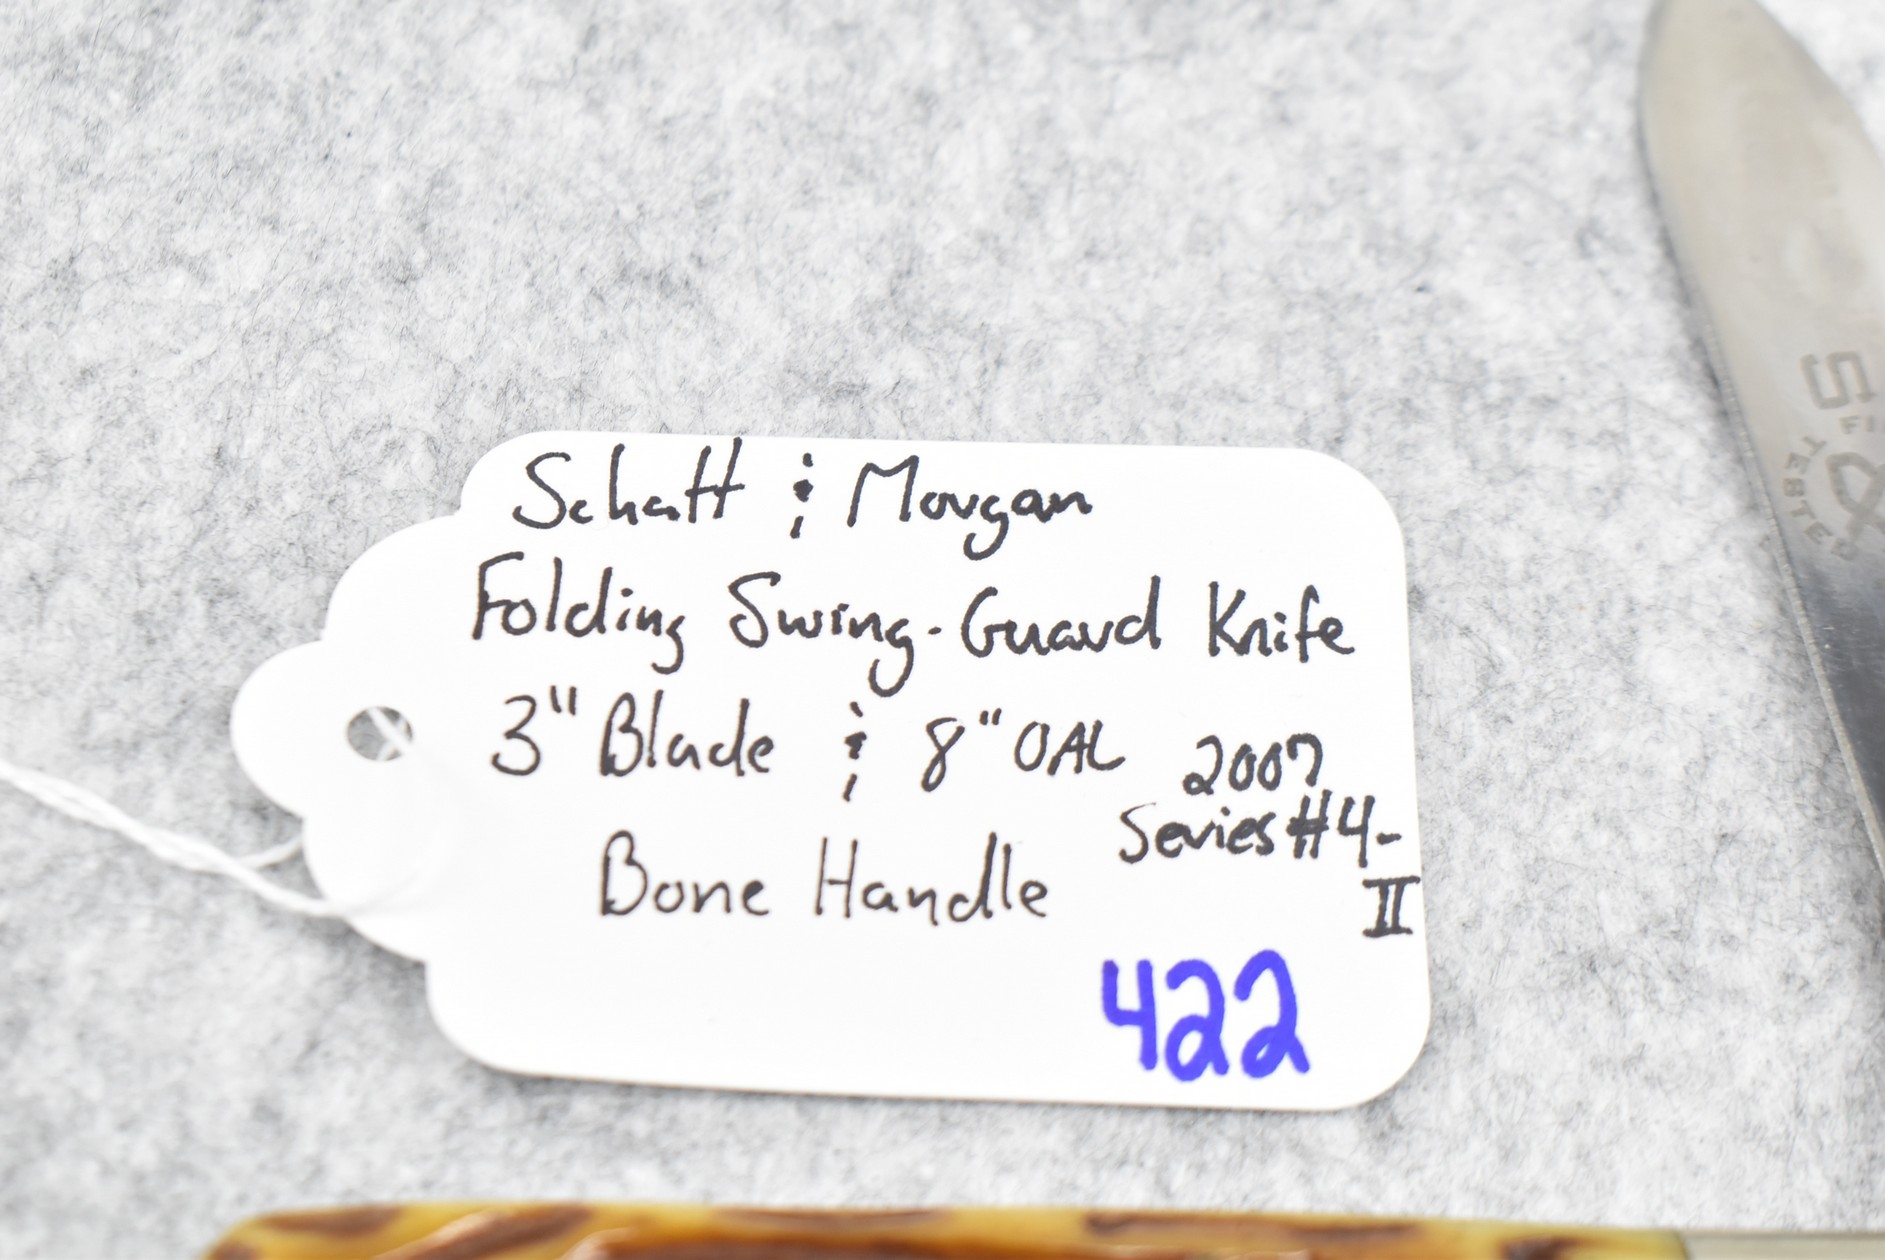 Schatt & Morgan
Folding Swing-Guard Knife
3" Blade & 8" OAL
2007
Series #4-
II
Bone Handle
422
TESTED